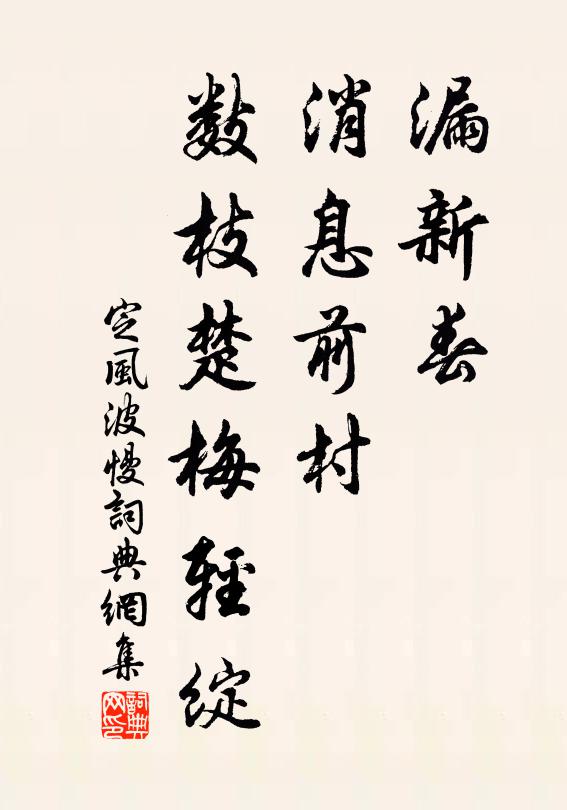 漏新春
消息前村
數枝楚梅輕綻
定風波慢詞典網集
詞典网印